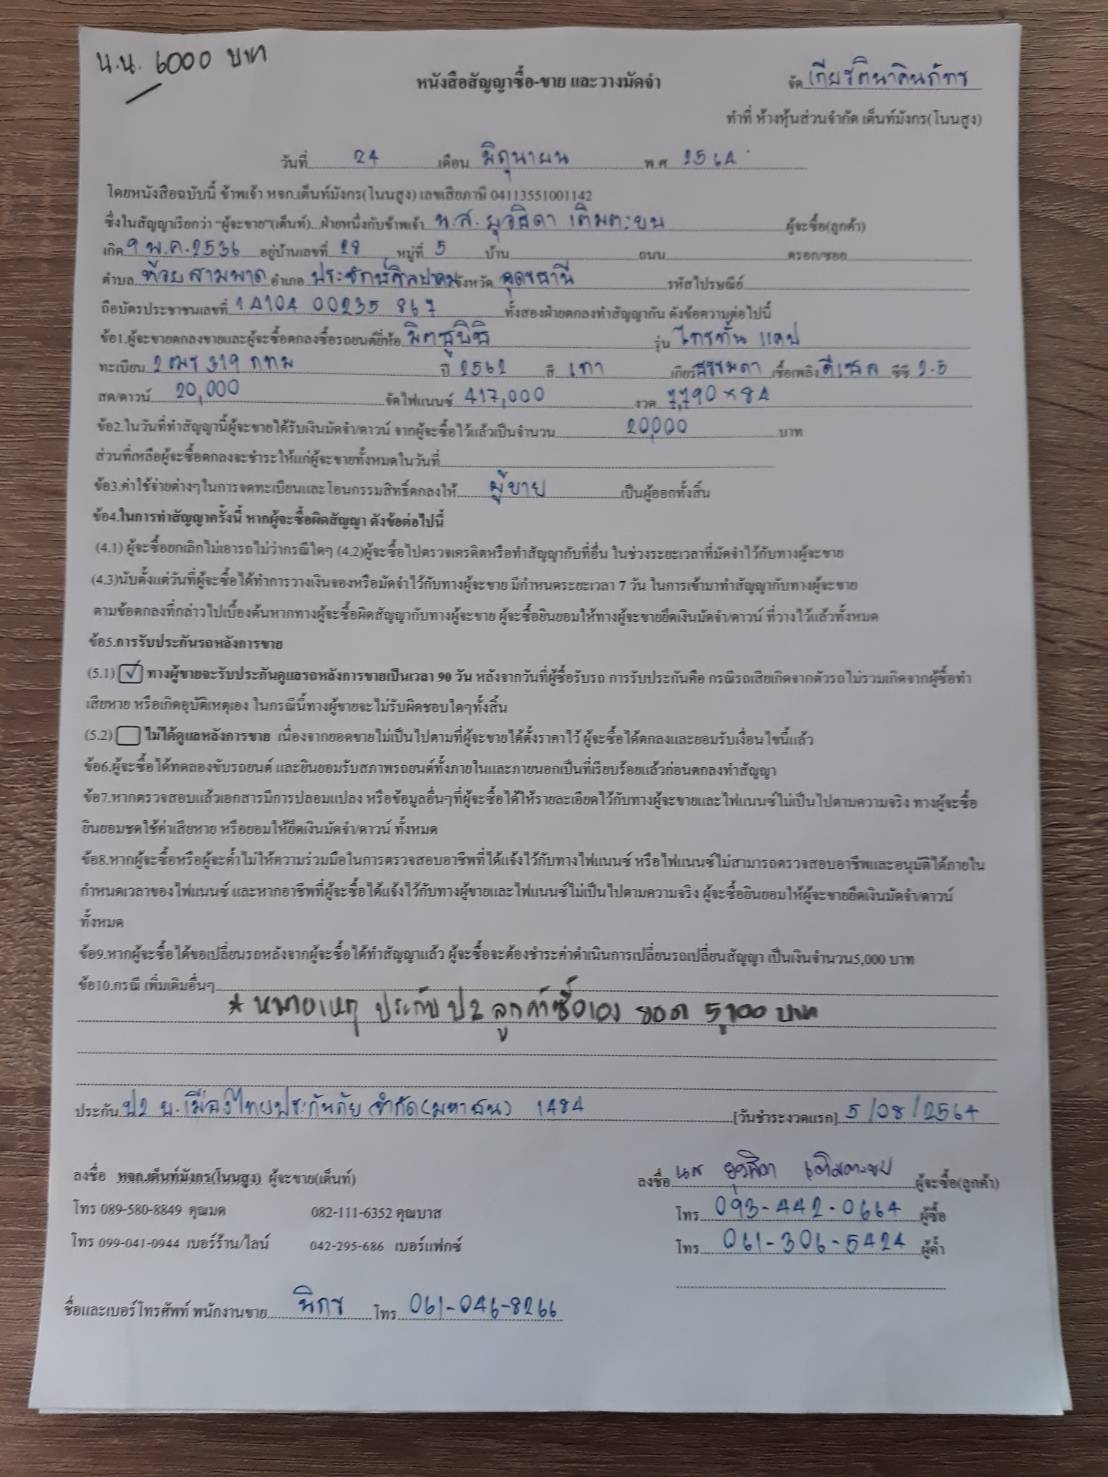 น.น. 6000 บาท
หนังสือสัญญาซื้อ-ขาย และวางมัดจำ
จัด เกียรตินาคินภัทร
ทำที่ ห้างหุ้นส่วนจำกัด เต็นท์มังกร(โนนสูง)
วันที่ 24 เดือน มิถุนายน พ.ศ 2564
โดยหนังสือฉบับนี้ ข้าพเจ้า หจก.เต็นท์มังกร(โนนสูง) เลขเสียภาษี 04113551001142
ซึ่งในสัญญาเรียกว่า "ผู้จะขาย"(เต็นท์)...ฝ่ายหนึ่งกับข้าพเจ้า น.ส. ยุวธิดา เติมตะขบ ผู้จะซื้อ(ลูกค้า)
เกิด 9 พ.ค. 2536 อยู่บ้านเลขที่ 28 หมู่ที่ 5 บ้าน ถนน ตรอก/ซอย
ตำบล ห้วยสามพาด อำเภอ ประจักษ์ศิลปาคม จังหวัด อุดรธานี รหัสไปรษณีย์
ถือบัตรประชาชนเลขที่ 14104 00235 867 ทั้งสองฝ่ายตกลงทำสัญญากัน ดังข้อความต่อไปนี้
ข้อ1.ผู้จะขายตกลงขายและผู้จะซื้อตกลงซื้อรถยนต์ยี่ห้อ มิตซูบิชิ รุ่น ไทรทัน แคป
ทะเบียน 2ฒร 319 กทม ปี 2562 สี เทา เกียร์ ธรรมดา เชื้อเพลิง ดีเซล ซีซี 2.5
สด/ดาวน์ 20,000 จัดไฟแนนซ์ 417,000 งวด 7,790 x 84
ข้อ2.ในวันที่ทำสัญญานี้ผู้จะขายได้รับเงินมัดจำ/ดาวน์ จากผู้จะซื้อไว้แล้วเป็นจำนวน 20,000 บาท
ส่วนที่เหลือผู้จะซื้อตกลงจะชำระให้แก่ผู้จะขายทั้งหมดในวันที่
ข้อ3.ค่าใช้จ่ายต่างๆในการจดทะเบียนและโอนกรรมสิทธิ์ตกลงให้ ผู้ขาย เป็นผู้ออกทั้งสิ้น
ข้อ4.ในการทำสัญญาครั้งนี้ หากผู้จะซื้อผิดสัญญา ดังข้อต่อไปนี้
(4.1) ผู้จะซื้อยกเลิกไม่เอารถไม่ว่ากรณีใดๆ (4.2)ผู้จะซื้อไปตรวจเครดิตหรือทำสัญญากับที่อื่น ในช่วงระยะเวลาที่มัดจำไว้กับทางผู้จะขาย
(4.3)นับตั้งแต่วันที่ผู้จะซื้อได้ทำการวางเงินจองหรือมัดจำไว้กับทางผู้จะขาย มีกำหนดระยะเวลา 7 วัน ในการเข้ามาทำสัญญากับทางผู้จะขาย
ตามข้อตกลงที่กล่าวไปเบื้องต้นหากทางผู้จะซื้อผิดสัญญากับทางผู้จะขาย ผู้จะซื้อยินยอมให้ทางผู้จะขายยึดเงินมัดจำ/ดาวน์ ที่วางไว้แล้วทั้งหมด
ข้อ5.การรับประกันรถหลังการขาย
(5.1) ✓ ทางผู้ขายจะรับประกันดูแลรถหลังการขายเป็นเวลา 90 วัน หลังจากวันที่ผู้ซื้อรับรถ การรับประกันคือ กรณีรถเสียเกิดจากตัวรถไม่รวมเกิดจากผู้ซื้อทำ
เสียหาย หรือเกิดอุบัติเหตุเอง ในกรณีนี้ทางผู้ขายจะไม่รับผิดชอบใดๆทั้งสิ้น
(5.2) ไม่ได้ดูแลหลังการขาย เนื่องจากยอดขายไม่เป็นไปตามที่ผู้จะขายได้ตั้งราคาไว้ ผู้จะซื้อได้ตกลงและยอมรับเงื่อนไขนี้แล้ว
ข้อ6.ผู้จะซื้อได้ทดลองขับรถยนต์ และยินยอมรับสภาพรถยนต์ทั้งภายในและภายนอกเป็นที่เรียบร้อยแล้วก่อนตกลงทำสัญญา
ข้อ7.หากตรวจสอบแล้วเอกสารมีการปลอมแปลง หรือข้อมูลอื่นๆที่ผู้จะซื้อได้ให้รายละเอียดไว้กับทางผู้จะขายและไฟแนนซ์ไม่เป็นไปตามความจริง ทางผู้จะซื้อ
ยินยอมชดใช้ค่าเสียหาย หรือยอมให้ยึดเงินมัดจำ/ดาวน์ ทั้งหมด
ข้อ8.หากผู้จะซื้อหรือผู้จะค้ำไม่ให้ความร่วมมือในการตรวจสอบอาชีพที่ได้แจ้งไว้กับทางไฟแนนซ์ หรือไฟแนนซ์ไม่สามารถตรวจสอบอาชีพและอนุมัติได้ภายใน
กำหนดเวลาของไฟแนนซ์ และหากอาชีพที่ผู้จะซื้อได้แจ้งไว้กับทางผู้ขายและไฟแนนซ์ไม่เป็นไปตามความจริง ผู้จะซื้อยินยอมให้ผู้จะขายยึดเงินมัดจำ/ดาวน์
ทั้งหมด
ข้อ9.หากผู้จะซื้อได้ขอเปลี่ยนรถหลังจากผู้จะซื้อได้ทำสัญญาแล้ว ผู้จะซื้อจะต้องชำระค่าดำเนินการเปลี่ยนรถเปลี่ยนสัญญา เป็นเงินจำนวน5,000 บาท
ข้อ10.กรณี เพิ่มเติมอื่นๆ
* หมายเหตุ ประกัน ป2 ลูกค้าซื้อเอง ยอด 5,700 บาท
ประกัน ป2 บ.เมืองไทยประกันภัย จำกัด(มหาชน) 1484 [วันชำระงวดแรก] 5/08/2564
ลงชื่อ หจก.เต็นท์มังกร(โนนสูง) ผู้จะขาย(เต็นท์) ลงชื่อ นส ยุวธิดา เติมตะขบ ผู้จะซื้อ(ลูกค้า)
โทร 089-580-8849 คุณมด 082-111-6352 คุณบาส โทร 093-442-0664 ผู้ซื้อ
โทร 099-041-0944 เบอร์ร้าน/ไลน์ 042-295-686 เบอร์แฟกซ์ โทร 061-306-5424 ผู้ค้ำ
ชื่อและเบอร์โทรศัพท์ พนักงานขาย นิกร โทร 061-046-8266